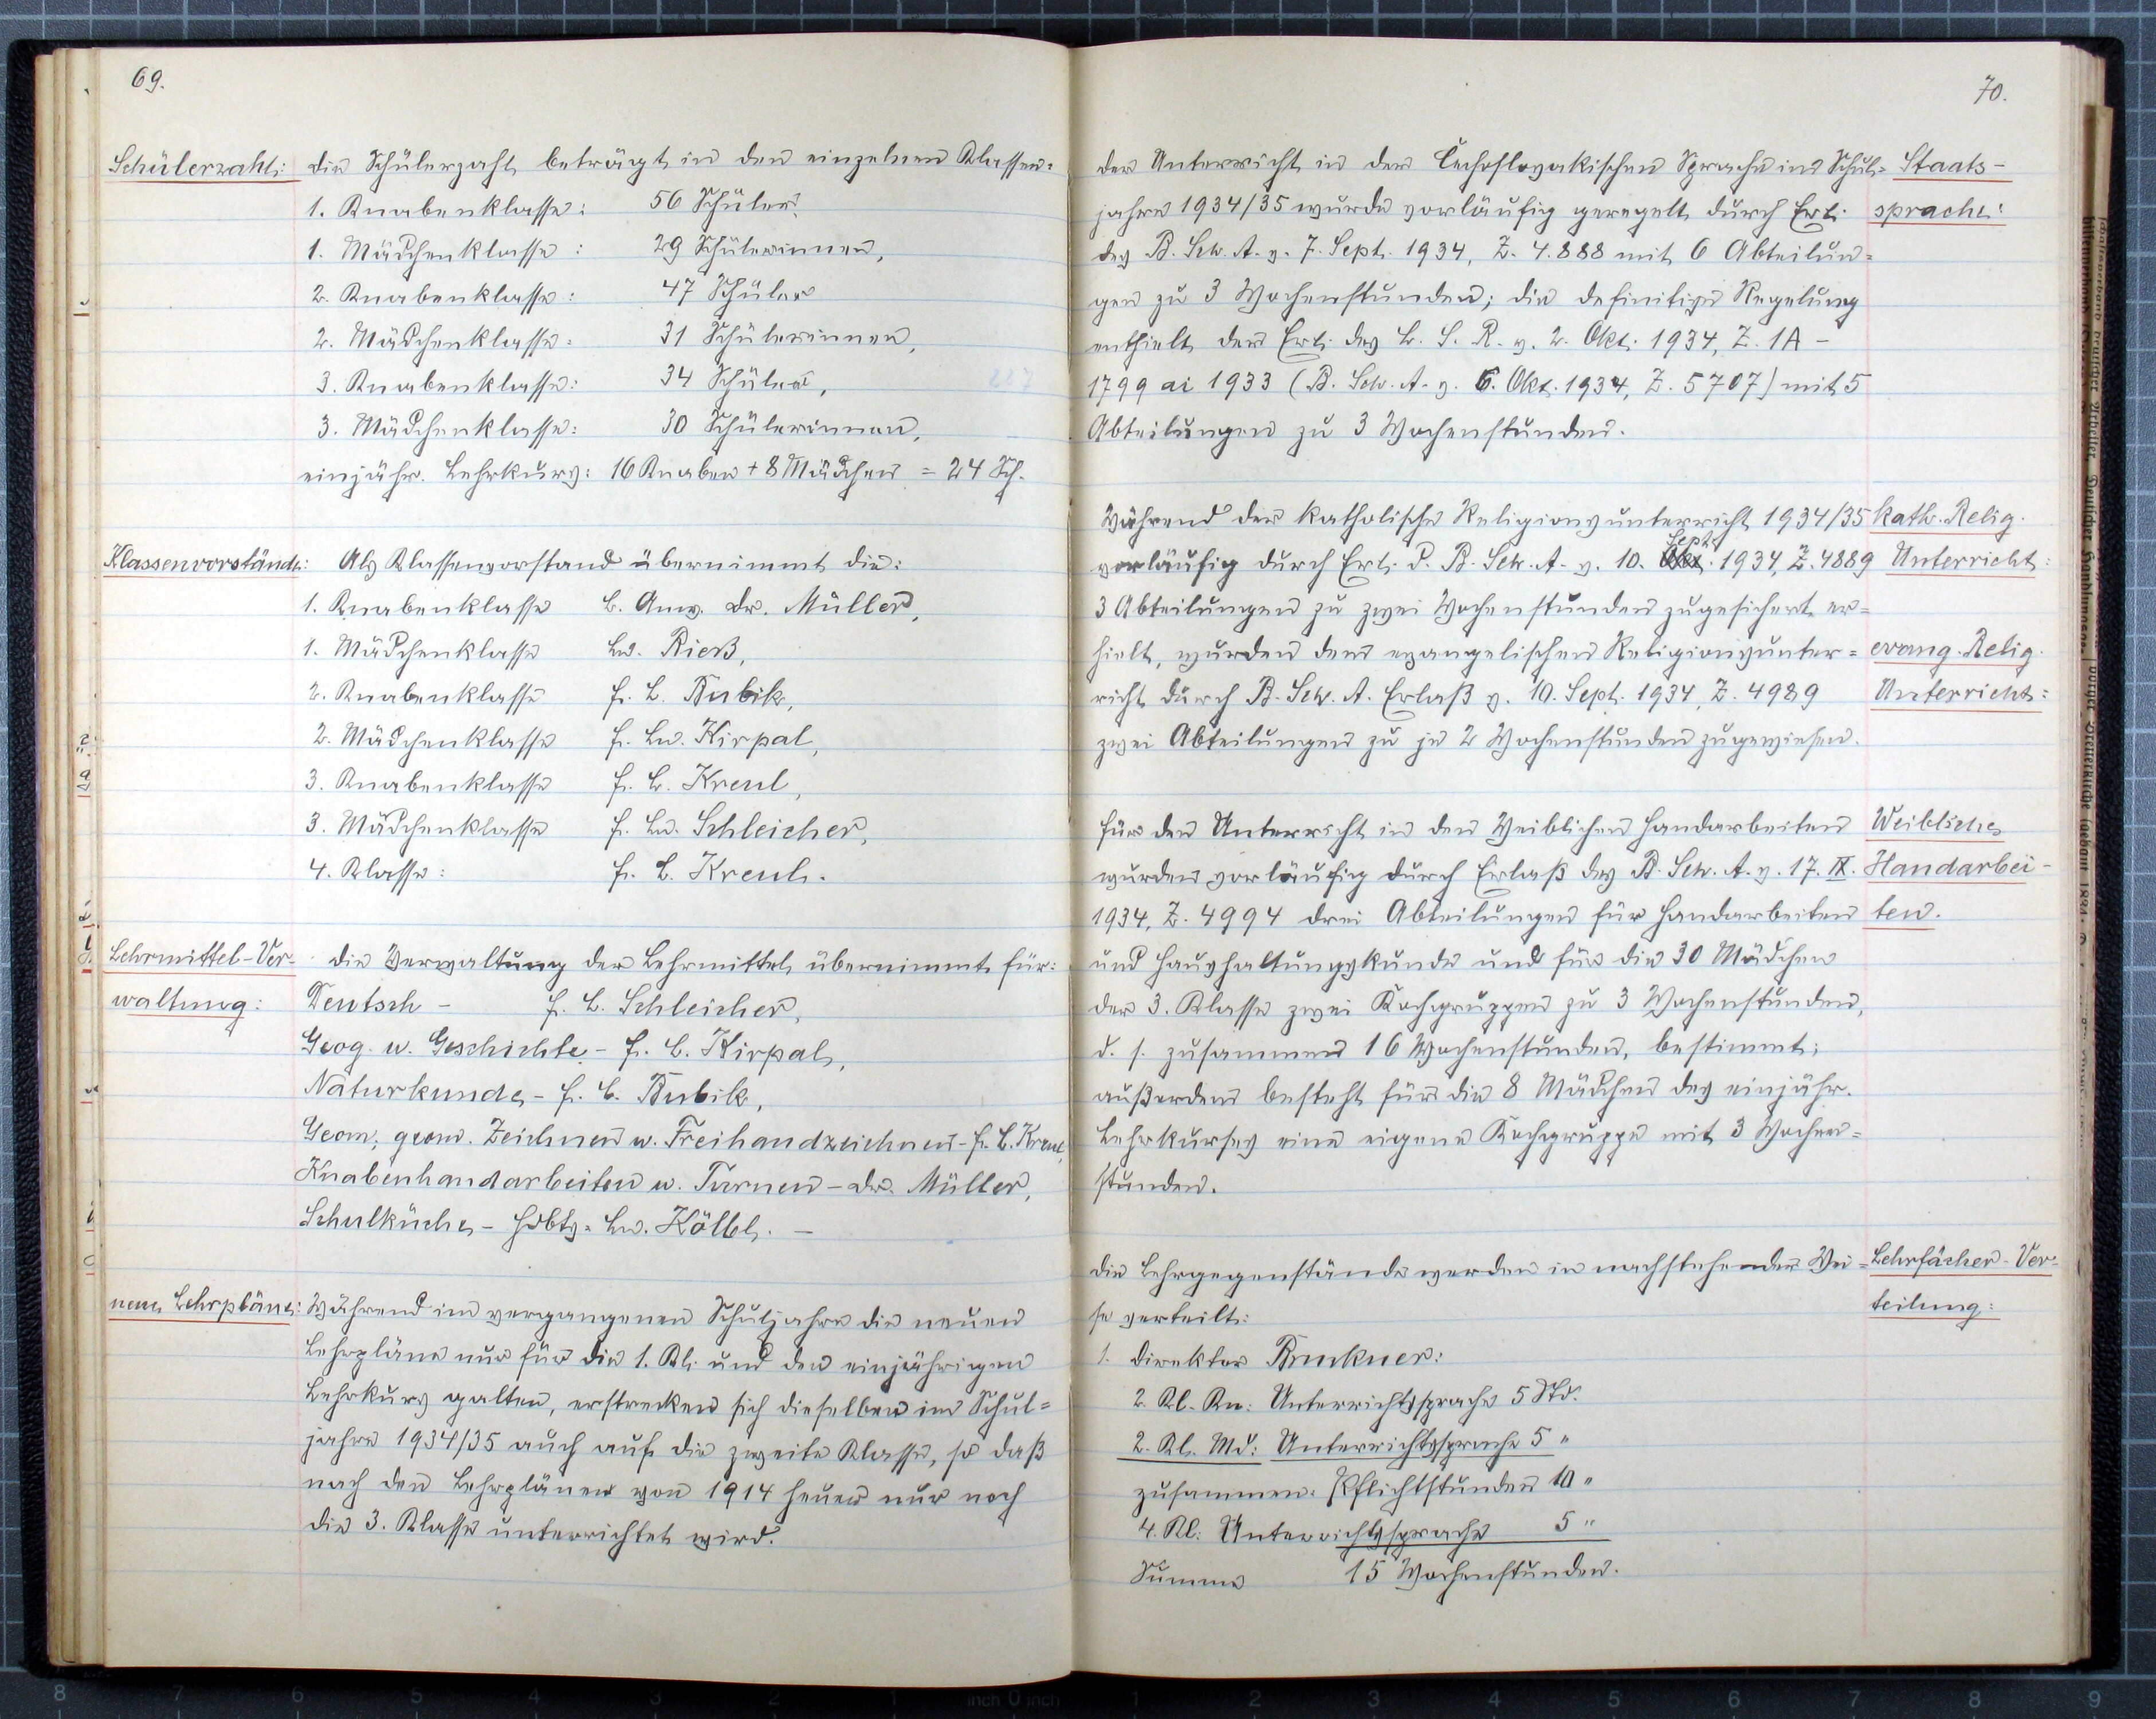 69.
Schülerzahl: Die Schülerzahl beträgt in den einzelnen Klassen:
1. Knabenklasse: 56 Schüler,
1. Mädchenklasse: 29 Schülerinnen,
2. Knabenklasse: 47 Schüler
2. Mädchenklasse: 31 Schülerinnen,
3. Knabenklasse: 34 Schüler, 227
3. Mädchenklasse: 30 Schülerinnen,
einjähr. Lehrkurs: 16 Knaben + 8 Mädchen = 24 Sch.
Klassenvorstände: Als Klassenvorstand übernimmt die:
1. Knabenklasse L. Anw. Dr. Müller,
1. Mädchenklasse Ln. Rieß,
2. Knabenklasse f. L. Bubik,
2. Mädchenklasse f. Ln. Kirpal,
3. Knabenklasse f. L. Kreul,
3. Mädchenklasse f. Ln. Schleicher,
4. Klasse: f. L. Kreul.
Lehrmittel-Ver- Die Verwaltung der Lehrmittel übernimmt für:
waltung: Deutsch - f. L. Schleicher,
Geog. u. Geschichte - f. L. Kirpal,
Naturkunde - f. L. Bubik,
Geom., geom. Zeichnen u. Freihandzeichnen - f. L. Kreul,
Knabenhandarbeiten u. Turnen - Dr. Müller,
Schulküche - Hdbts. Ln. Kölbl. -
neue Lehrpläne: Während im vergangenen Schuljahre die neuen
Lehrpläne nur für die 1. Kl. und den einjährigen
Lehrkurs galten, erstrecken sich dieselben im Schul=
jahre 1934/35 auch auf die zweite Klasse, so daß
nach den Lehrplänen von 1914 heuer nur noch
die 3. Klasse unterrichtet wird.
70.
Der Unterricht in der Čechoslovakischen Sprache im Schul= Staats-
jahre 1934/35 wurde vorläufig geregelt durch Erl. sprache:
des B. Sch. A. v. 7. Sept. 1934, Z. 4.888 mit 6 Abteilun=
gen zu 3 Wochenstunden; die definitive Regelung
enthielt der Erl. des L. S. R. v. 2. Okt. 1934, Z. IA -
1799 ai 1933 (B. Sch. A. v. 6. Okt. 1934, Z. 5707) mit 5
Abteilungen zu 3 Wochenstunden.
Während der katholische Religionsunterricht 1934/35 kath. Relig.
vorläufig durch Erl. d. B. Sch. A. v. 10. Sept. 1934, Z. 4889 Unterricht:
3 Abteilungen zu zwei Wochenstunden zugesichert er=
hielt, wurden dem evangelischen Religionsunter= evang. Relig.
richt durch B. Sch. A. Erlaß v. 10. Sept. 1934, Z. 4989 Unterricht:
zwei Abteilungen zu je 2 Wochenstunden zugewiesen.
Für den Unterricht in den Weiblichen Handarbeiten Weibliche
wurden vorläufig durch Erlaß des B. Sch. A. v. 17. IX. Handarbei-
1934, Z. 4994 drei Abteilungen für Handarbeiten ten.
und Haushaltungskunde und für die 30 Mädchen
der 3. Klasse zwei Kochgruppen zu 3 Wochenstunden,
d. s. zusammen 16 Wochenstunden, bestimmt;
außerdem besteht für die 8 Mädchen des einjähr.
Lehrkurses eine eigene Kochgruppe mit 3 Wochen=
stunden.
Die Lehrgegenstände werden in nachstehender Wei= Lehrfächer-Ver-
se verteilt: teilung:
1. Direktor Bruckner:
2. Kl. Kn: Unterrichtssprache 5 Std.
2. Kl. Md: Unterrichtssprache 5 "
zusammen: Pflichtstunden 10 "
4. Kl: Unterrichtssprache 5 "
Summe 15 Wochenstunden.
8 7 6 5 4 3 2 1 inch 0 inch 1 2 3 4 5 6 7 8 9